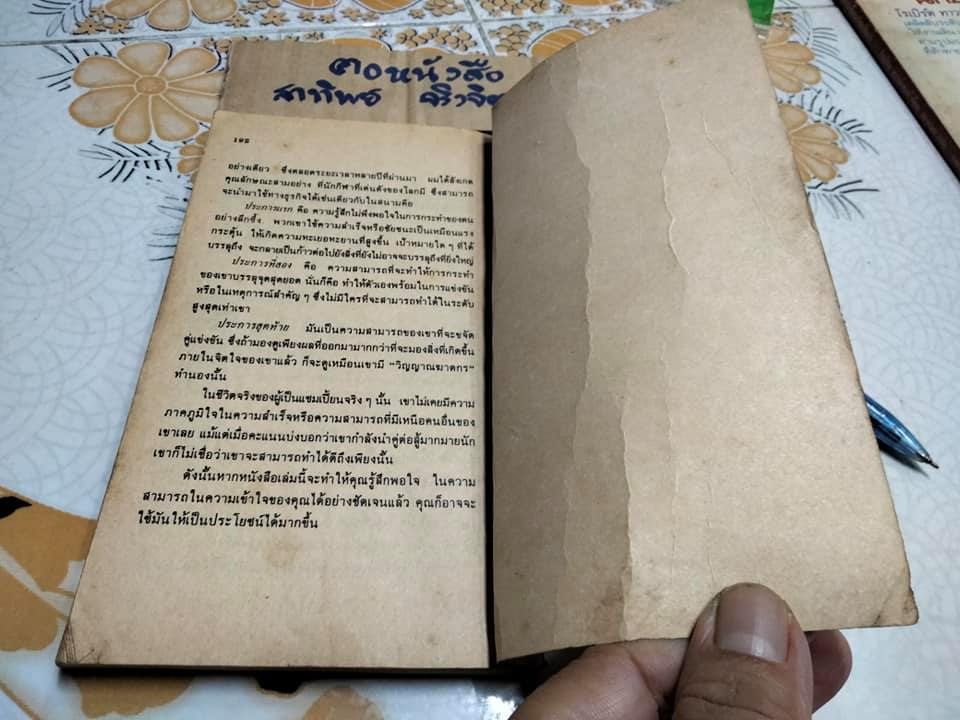 ตอหนังสือ
สาทิพธ จิวจิน
โรเบิร์ต ทาว
๑๙๒
อย่างเดียว ซึ่งตลอดระยะเวลาหลายปีที่ผ่านมา ผมได้สังเกต
คุณลักษณะสามอย่าง ที่นักกีฬาที่เด่นดังของโลกมี ซึ่งสามารถ
จะนำมาใช้ทางธุรกิจได้เช่นเดียวกับในสนามคือ
ประการแรก คือ ความรู้สึกไม่พึงพอใจในการกระทำของตน
อย่างลึกซึ้ง พวกเขาใช้ความสำเร็จหรือชัยชนะเป็นเหมือนแรง
กระตุ้น ให้เกิดความทะเยอทะยานที่สูงขึ้น เป้าหมายใด ๆ ที่ได้
บรรลุถึง จะกลายเป็นก้าวต่อไปยังสิ่งที่ยังไม่อาจจะบรรลุถึงที่ยิ่งใหญ่
ประการที่สอง คือ ความสามารถที่จะทำให้การกระทำ
ของเขาบรรลุจุดสุดยอด นั่นก็คือ ทำให้ตัวเองพร้อมในการแข่งขัน
หรือในเหตุการณ์สำคัญ ๆ ซึ่งไม่มีใครที่จะสามารถทำได้ในระดับ
สูงสุดเท่าเขา
ประการสุดท้าย มันเป็นความสามารถของเขาที่จะขจัด
คู่แข่งขัน ซึ่งถ้ามองดูเพียงผลที่ออกมามากกว่าที่จะมองสิ่งที่เกิดขึ้น
ภายในจิตใจของเขาแล้ว ก็จะดูเหมือนเขามี "วิญญาณฆาตกร"
ทำนองนั้น
ในชีวิตจริงของผู้เป็นแชมเปี้ยนจริง ๆ นั้น เขาไม่เคยมีความ
ภาคภูมิใจในความสำเร็จหรือความสามารถที่มีเหนือคนอื่นของ
เขาเลย แม้แต่เมื่อคะแนนบ่งบอกว่าเขากำลังนำคู่ต่อสู้มากมายนัก
เขาก็ไม่เชื่อว่าเขาจะสามารถทำได้ดีถึงเพียงนั้น
ดังนั้นหากหนังสือเล่มนี้จะทำให้คุณรู้สึกพอใจ ในความ
สามารถในความเข้าใจของคุณได้อย่างชัดเจนแล้ว คุณก็อาจจะ
ใช้มันให้เป็นประโยชน์ได้มากขึ้น